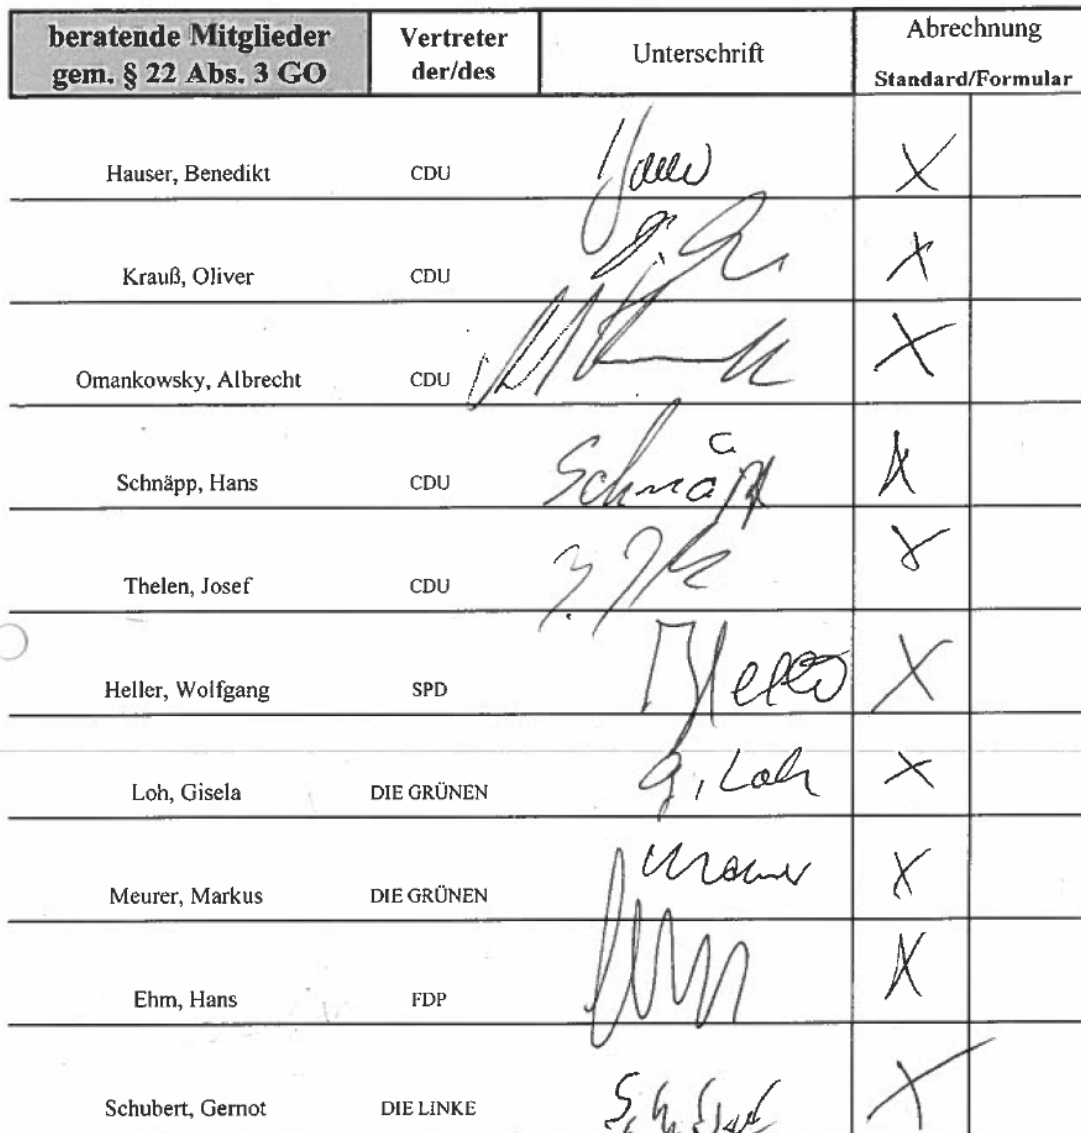 beratende Mitglieder
gem. § 22 Abs. 3 GO
Vertreter
der/des
Unterschrift
Abrechnung
Standard/Formular
Hauser, Benedikt CDU X
Krauß, Oliver CDU X
Omankowsky, Albrecht CDU X
Schnäpp, Hans CDU Schnäpp X
Thelen, Josef CDU X
Heller, Wolfgang SPD X
Loh, Gisela DIE GRÜNEN G. Loh X
Meurer, Markus DIE GRÜNEN X
Ehm, Hans FDP X
Schubert, Gernot DIE LINKE X